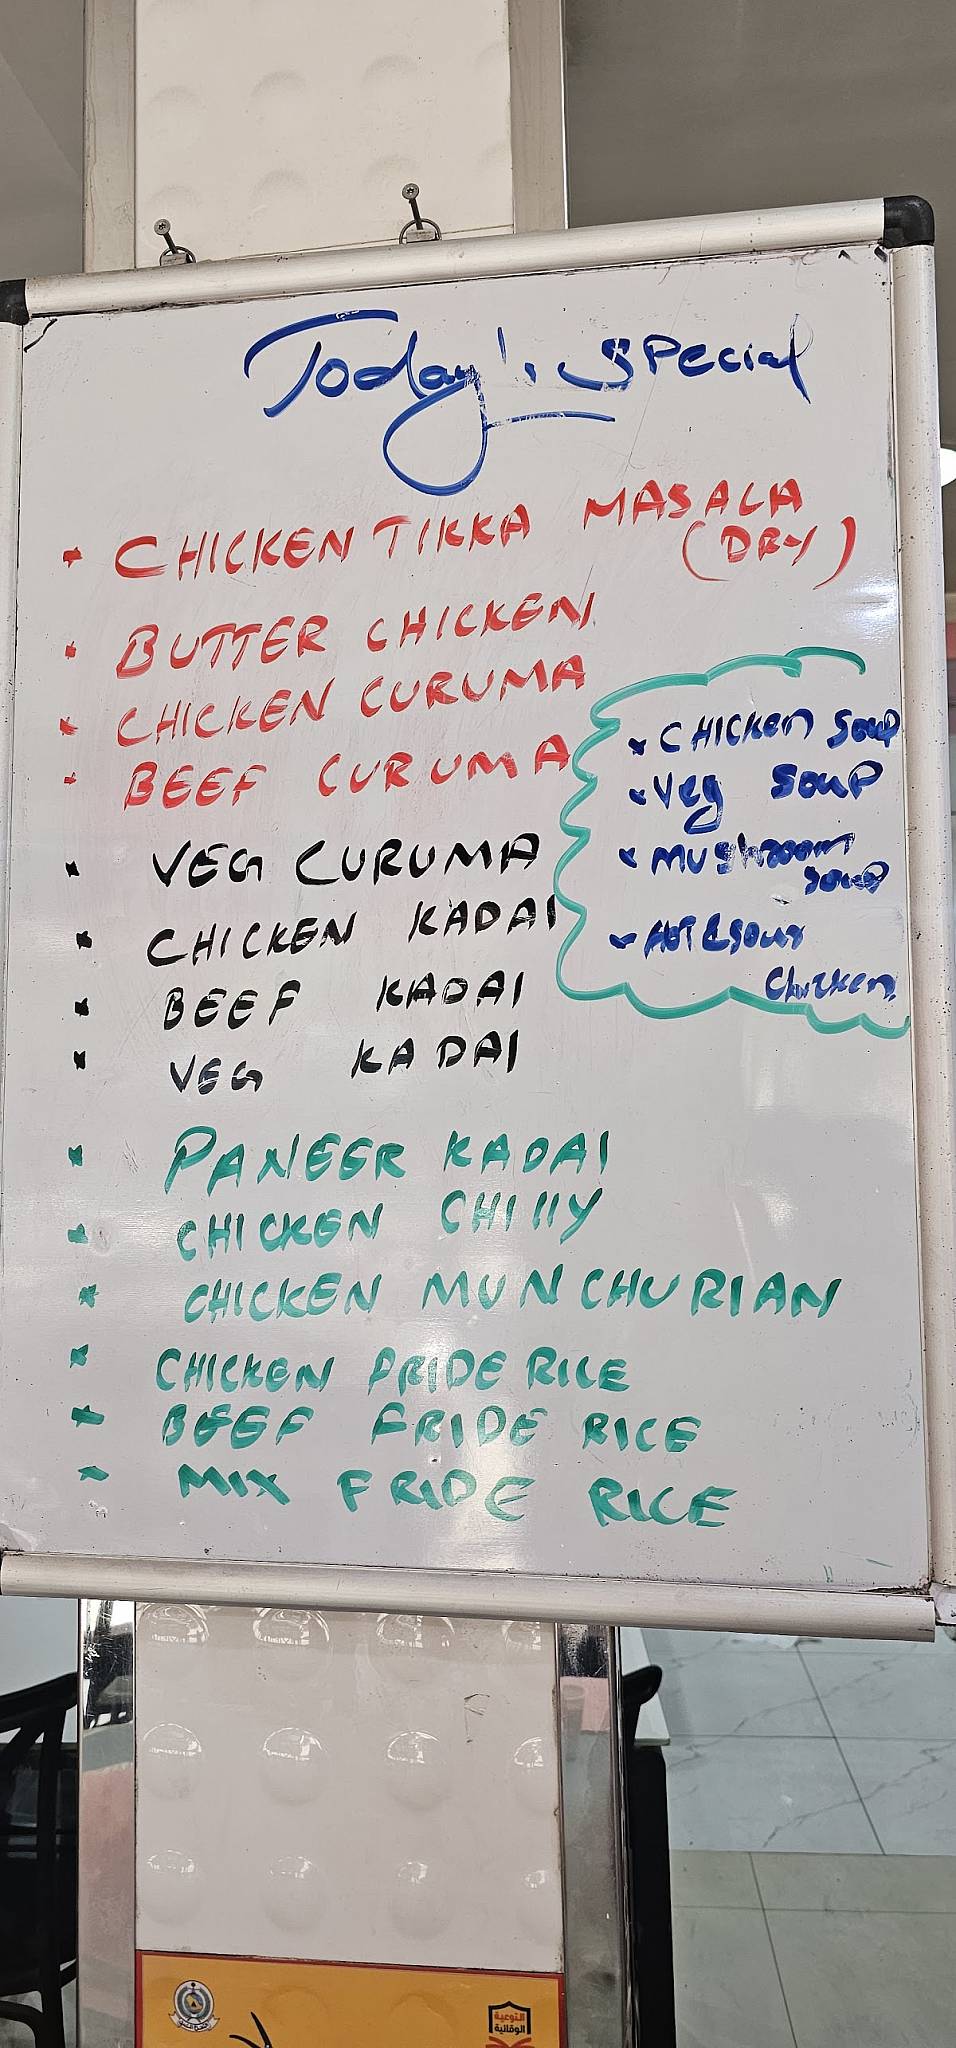 Today's special
* CHICKEN TIKKA MASALA
(DRY)
* BUTTER CHICKEN
* CHICKEN CURUMA
* BEEF CURUMA
* VEG CURUMA
* CHICKEN KADAI
* BEEF KADAI
* VEG KADAI
* PANEER KADAI
* CHICKEN CHIllY
* CHICKEN MUNCHURIAN
* CHICKEN FRIDE RICE
* BEEF FRIDE RICE
* MIX FRIDE RICE
* CHICKen Soup
* Veg Soup
* Mushroom
Soup
* HOT & Sour
Chicken
التوعية
الوقائية